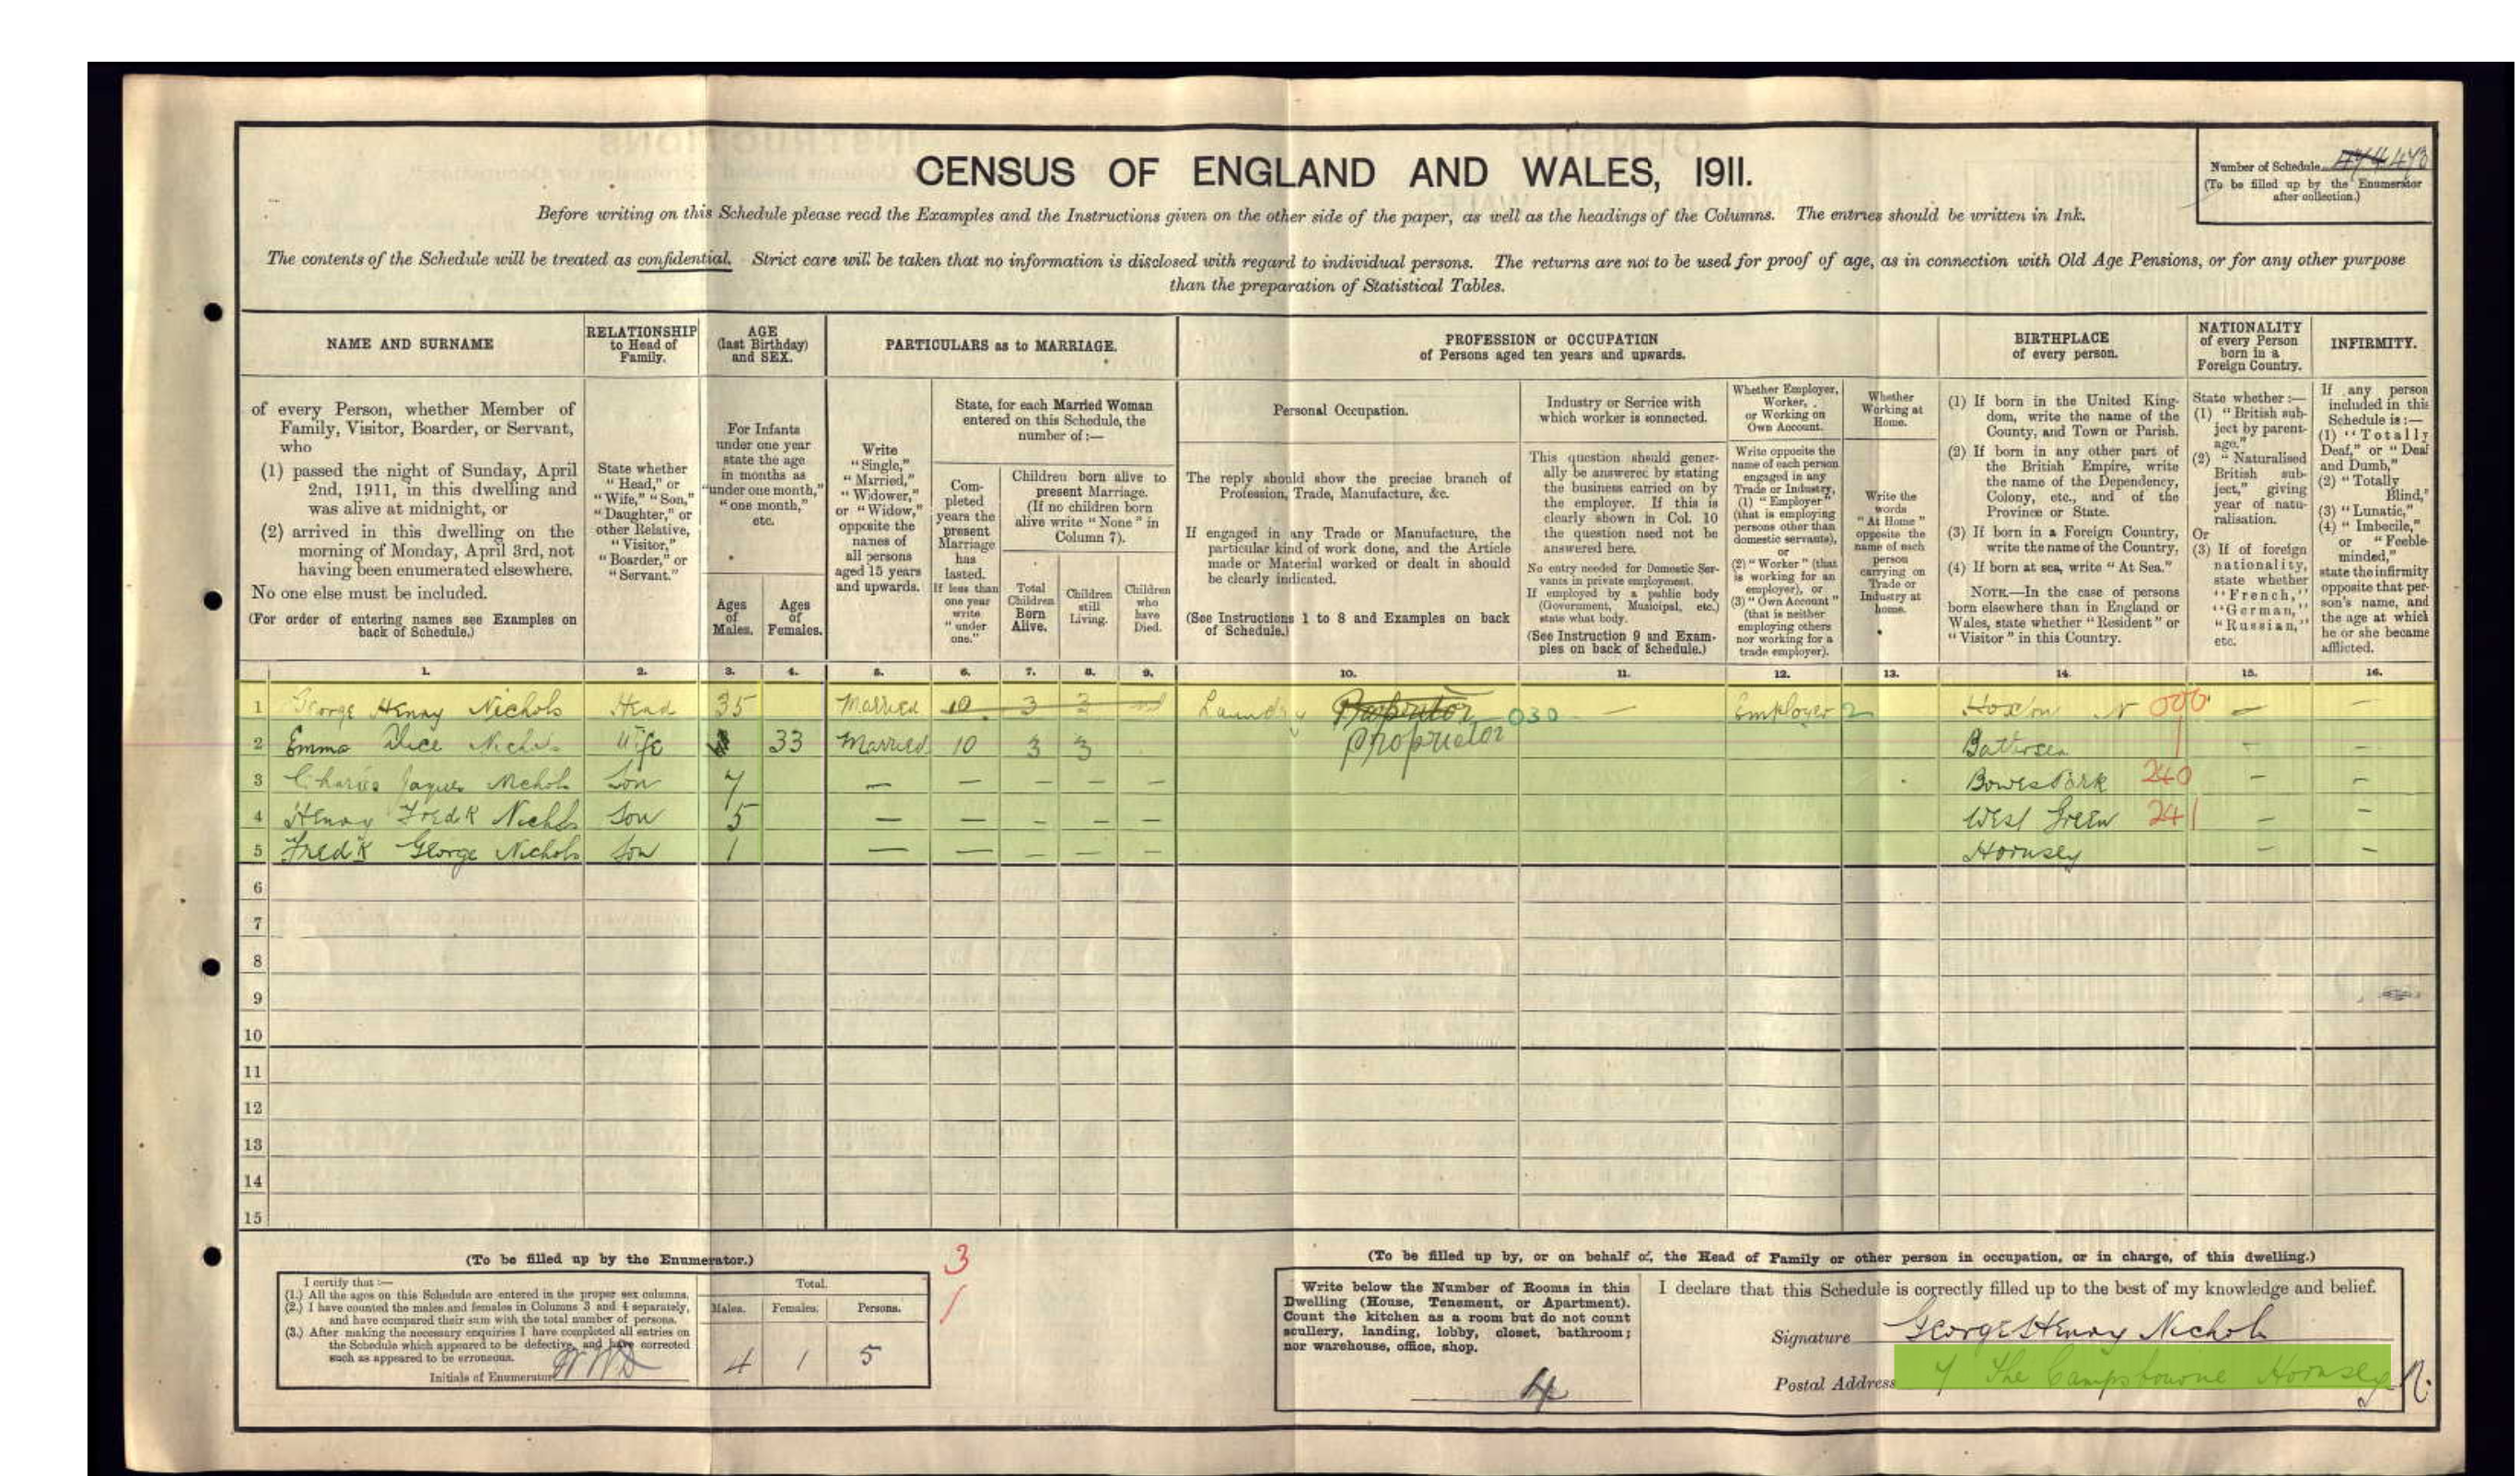 CENSUS OF ENGLAND AND WALES, 1911.
Number of Schedule 473
(To be filled up by the Enumerator
after collection.)
Before writing on this Schedule please read the Examples and the Instructions given on the other side of the paper, as well as the headings of the Columns. The entries should be written in Ink.
The contents of the Schedule will be treated as confidential. Strict care will be taken that no information is disclosed with regard to individual persons. The returns are not to be used for proof of age, as in connection with Old Age Pensions, or for any other purpose
than the preparation of Statistical Tables.
NAME AND SURNAME
of every Person, whether Member of
Family, Visitor, Boarder, or Servant,
who
(1) passed the night of Sunday, April
2nd, 1911, in this dwelling and
was alive at midnight, or
(2) arrived in this dwelling on the
morning of Monday, April 3rd, not
having been enumerated elsewhere.
No one else must be included.
(For order of entering names see Examples on
back of Schedule.)
RELATIONSHIP
to Head of
Family.
State whether
"Head," or
"Wife," "Son,"
"Daughter," or
other Relative,
"Visitor,"
"Boarder," or
"Servant."
AGE
(last Birthday)
and SEX.
For Infants
under one year
state the age
in months as
"under one month,"
"one month,"
etc.
Ages
of
Males.
Ages
of
Females.
PARTICULARS as to MARRIAGE.
Write
"Single,"
"Married,"
"Widower,"
or "Widow,"
opposite the
names of
all persons
aged 15 years
and upwards.
State, for each Married Woman
entered on this Schedule, the
number of:—
Com-
pleted
years the
present
Marriage
has
lasted.
If less than
one year
write
"under
one."
Children born alive to
present Marriage.
(If no children born
alive write "None" in
Column 7).
Total
Children
Born
Alive.
Children
still
Living.
Children
who
have
Died.
PROFESSION or OCCUPATION
of Persons aged ten years and upwards.
Personal Occupation.
The reply should show the precise branch of
Profession, Trade, Manufacture, &c.
If engaged in any Trade or Manufacture, the
particular kind of work done, and the Article
made or Material worked or dealt in should
be clearly indicated.
(See Instructions 1 to 8 and Examples on back
of Schedule.)
Industry or Service with
which worker is connected.
This question should gener-
ally be answered by stating
the business carried on by
the employer. If this is
clearly shown in Col. 10
the question need not be
answered here.
No entry needed for Domestic Ser-
vants in private employment.
If employed by a public body
(Government, Municipal, etc.)
state what body.
(See Instruction 9 and Exam-
ples on back of Schedule.)
Whether Employer,
Worker,
or Working on
Own Account.
Write opposite the
name of each person
engaged in any
Trade or Industry,
(1) "Employer"
(that is employing
persons other than
domestic servants),
or
(2) "Worker" (that
is working for an
employer), or
(3) "Own Account"
(that is neither
employing others
nor working for a
trade employer).
Whether
Working at
Home.
Write the
words
"At Home"
opposite the
name of each
person
carrying on
Trade or
Industry at
home.
BIRTHPLACE
of every person.
(1) If born in the United King-
dom, write the name of the
County, and Town or Parish.
(2) If born in any other part of
the British Empire, write
the name of the Dependency,
Colony, etc., and of the
Province or State.
(3) If born in a Foreign Country,
write the name of the Country,
(4) If born at sea, write "At Sea."
NOTE.—In the case of persons
born elsewhere than in England or
Wales, state whether "Resident" or
"Visitor" in this Country.
NATIONALITY
of every Person
born in a
Foreign Country.
State whether:—
(1) "British sub-
ject by parent-
age."
(2) "Naturalised
British sub-
ject," giving
year of natu-
ralisation.
Or
(3) If of foreign
nationality,
state whether
"French,"
"German,"
"Russian,"
etc.
INFIRMITY.
If any person
included in this
Schedule is:—
(1) "Totally
Deaf," or "Deaf
and Dumb,"
(2) "Totally
Blind,"
(3) "Lunatic,"
(4) "Imbecile,"
or "Feeble-
minded,"
state the infirmity
opposite that per-
son's name, and
the age at which
he or she became
afflicted.
1. 2. 3. 4. 5. 6. 7. 8. 9. 10. 11. 12. 13. 14. 15. 16.
1 George Henry Nichols Head 35 Married 10 3 3 Laundry Proprietor 030 — Employer 2 Hoxton N 000 — —
2 Emma Alice Nichols Wife 33 Married 10 3 3 Proprietor Battersea — —
3 Charles Jaques Nichols Son 7 — — — — — Bowes Park 240 — —
4 Henry Fredk Nichols Son 5 — — — — — West Green 241 — —
5 Fredk George Nichols Son 1 — — — — — Hornsey — —
6
7
8
9
10
11
12
13
14
15
(To be filled up by the Enumerator.)
I certify that:—
(1.) All the ages on this Schedule are entered in the proper sex columns.
(2.) I have counted the males and females in Columns 3 and 4 separately,
and have compared their sum with the total number of persons.
(3.) After making the necessary enquiries I have completed all entries on
the Schedule which appeared to be defective, and have corrected
such as appeared to be erroneous.
Initials of Enumerator
Total.
Males. Females. Persons.
4 1 5
3
(To be filled up by, or on behalf of, the Head of Family or other person in occupation, or in charge, of this dwelling.)
Write below the Number of Rooms in this
Dwelling (House, Tenement, or Apartment).
Count the kitchen as a room but do not count
scullery, landing, lobby, closet, bathroom;
nor warehouse, office, shop.
4
I declare that this Schedule is correctly filled up to the best of my knowledge and belief.
Signature George Henry Nichols
Postal Address 7 The Campsbourne Hornsey N.